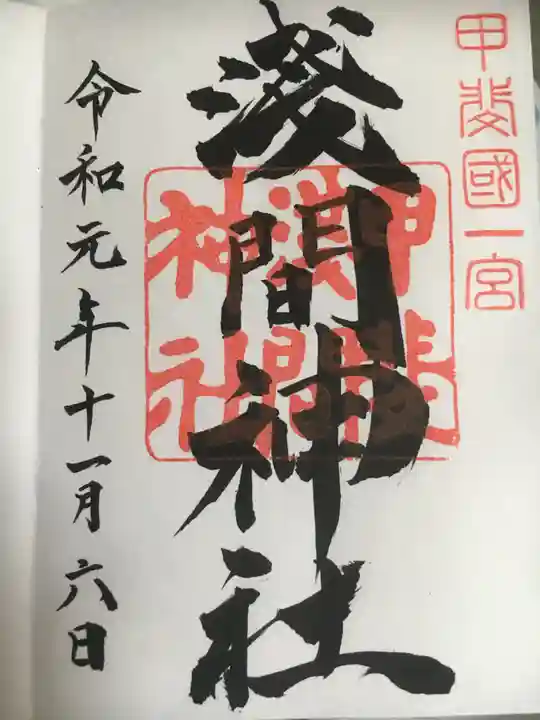 甲斐國一宮
淺間神社
甲斐
淺間
神社
令和元年十一月六日